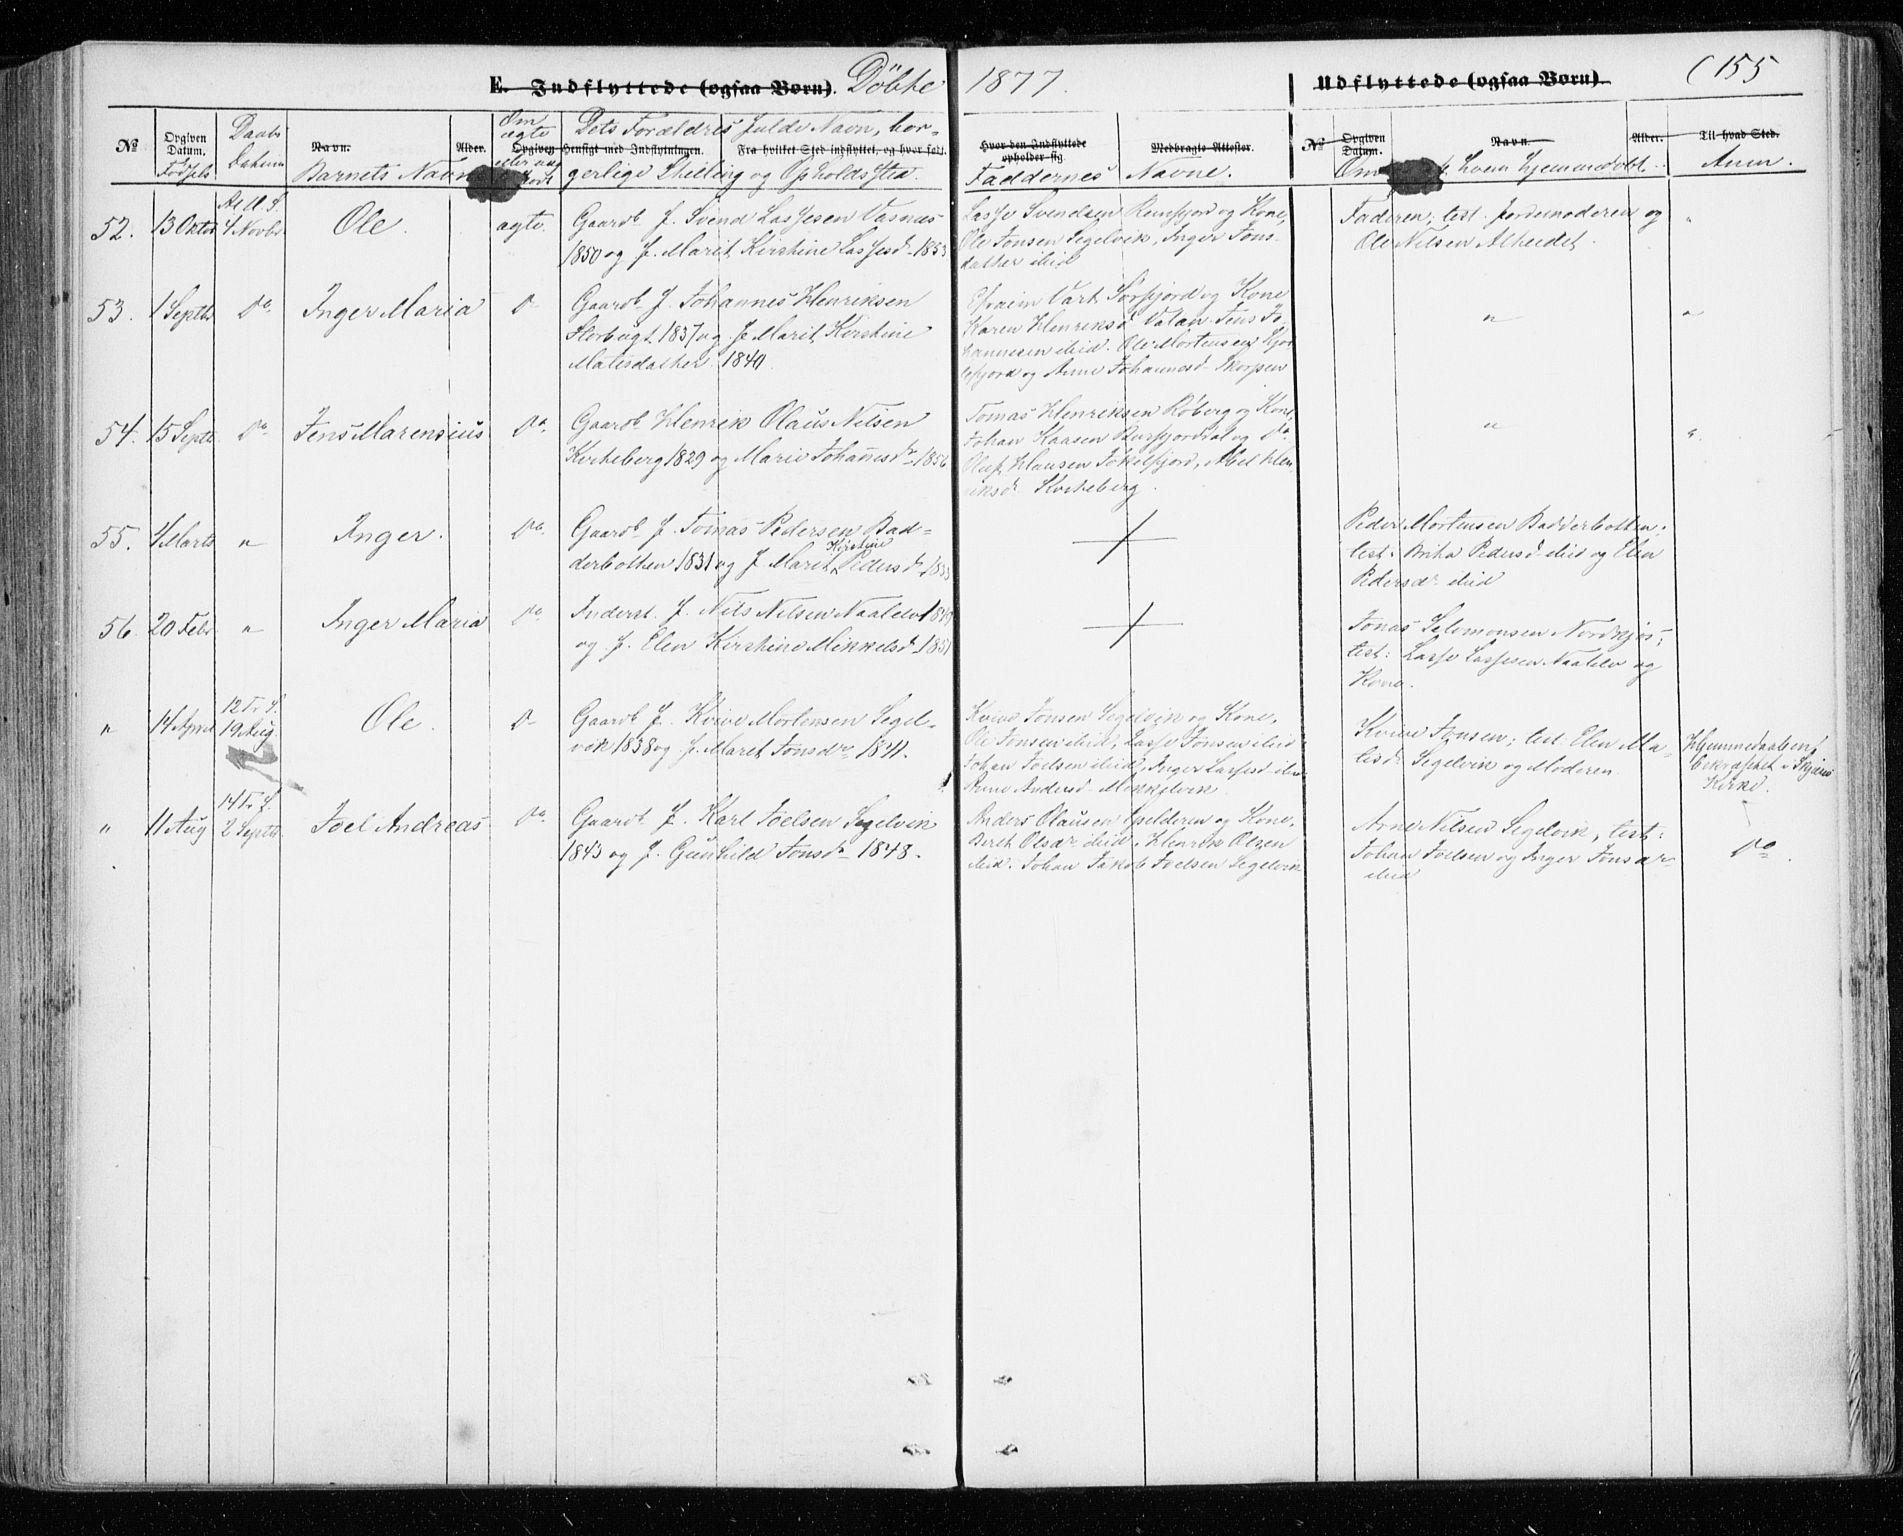 E. Indflyttede (ogsaa Børn). Döbte 1877. Udflyttede (ogsaa Børn) (155
No Opgiven Datum. Födsels Daabs Datum Navn. Barnets Navn Alder. Om ægte eller
Opgiven Hensigt med Indflytningen. Fra hvilket Sted indflyttet, og hvor født.
Dets Forældres fulde Navn, bor-
gerlige Stilling og Opholdssted.
Hvor den Indflyttede opholder sig. Medbragte Attester.
Faddernes Navne.
No Opgiven Datum. Navn. Alder. Til hvad Sted.
Om hvem hjemmedøbt. Anm.
52. 13 Oktbr 4 Novbr Ole. ægte. Gaardb. f. Svend Lassesen Vasnæs
1850 og f. Marit Kirstine Lassesd. 1853
Lasse Svendsen Reinfjord og Kone,
Ole Jonsen Segelvik, Inger Jons-
datter ibid
Faderen; test. Jordemoderen og
Ole Nilsen Alteidet. "
53. 1 Septbr Do. Inger Maria Do Gaardb. f. Johannes Henriksen
Storbugt 1837 og f. Marit Kirstine
Matisdatter 1840.
Efraim Vart Sörfjord og Kone
Karen Henriksd. Valan. Jens Jo-
hannesen ibid. Ole Mortensen Kjø-
lefjord og Anne Johannesd. Skorpen
" "
54. 15 Septbr Do Jens Marensius Do. Gaardb. Henrik Olaus Nilsen
Kirkeberg 1829 og Marie Johannesdr. 1856
Tomas Henriksen Röberg og Kone,
Johan Kaasen Burfjorddal og Do
Oluf Hansen Jökelfjord, Abel Hen-
riksdr. Kirkeberg.
" "
55. 4 Marts " Inger. Do. Gaardb. f. Tomas Pedersen Bad-
derbotten 1831 og f. Marit Kirstine Pedersdr. 1833
Peder Mortensen Badderbotten;
test: Brita Pedersd. ibid og Elen
Pedersdr. ibid
56. 20 Febr " Inger Maria Do. Inderst. f. Nils Nilsen Naalelv 1849
og f. Elen Kirstine Mikkelsd. 1851
Jonas Salomonsen Nordkjos;
test: Lasse Lassesen Naalelv og
Kone.
" 14 April 12 Tr. S. 19 Aug. Ole. Do Gaardb. f. Kvive Mortensen Segel-
vik 1838 og f. Marit Jonsdr. 1841.
Kvive Jonsen Segelvik og Kone,
Ole Jonsen ibid, Lasse Jonsen ibid
Johan Joelsen ibid, Inger Lassesd. ibid
Anne Andersd. Mikkelvik.
Kvive Jonsen; test: Elen Ma-
tisdr. Segelvik og Moderen.
Hjemmedaaben
bekræftet i Skjærvø
Kirke.
" 11 Aug 14 Tr. S. 2 Septbr. Joel Andreas Do. Gaardb. f. Karl Joelsen Segelvik
1843 og f. Gunhild Jonsdr. 1848.
Anders Olausen Spilderen og Kone,
Berit Olsdr. ibid, Henrik Olsen
ibid. Johan Jakob Joelsen Segelvik
Arne Nilsen Segelvik; test:
Johan Joelsen og Inger Jonsdr.
ibid
Do.